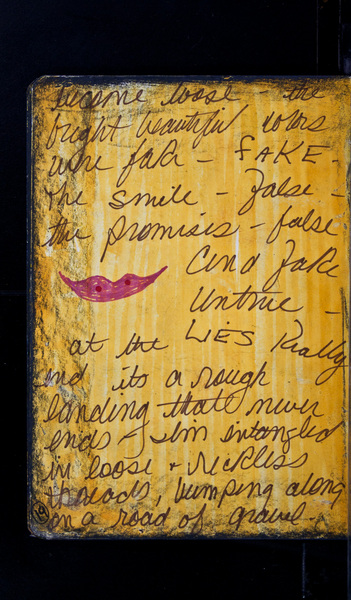 become loose - the
bright beautiful colors
were fake - FAKE -
the smile - false -
the promises - false
and fake
untrue -
LIES Really
at the
end its a rough
landing that never
ends - Im entangled
in loose + reckless
threads, bumping along
on a road of gravel.
19